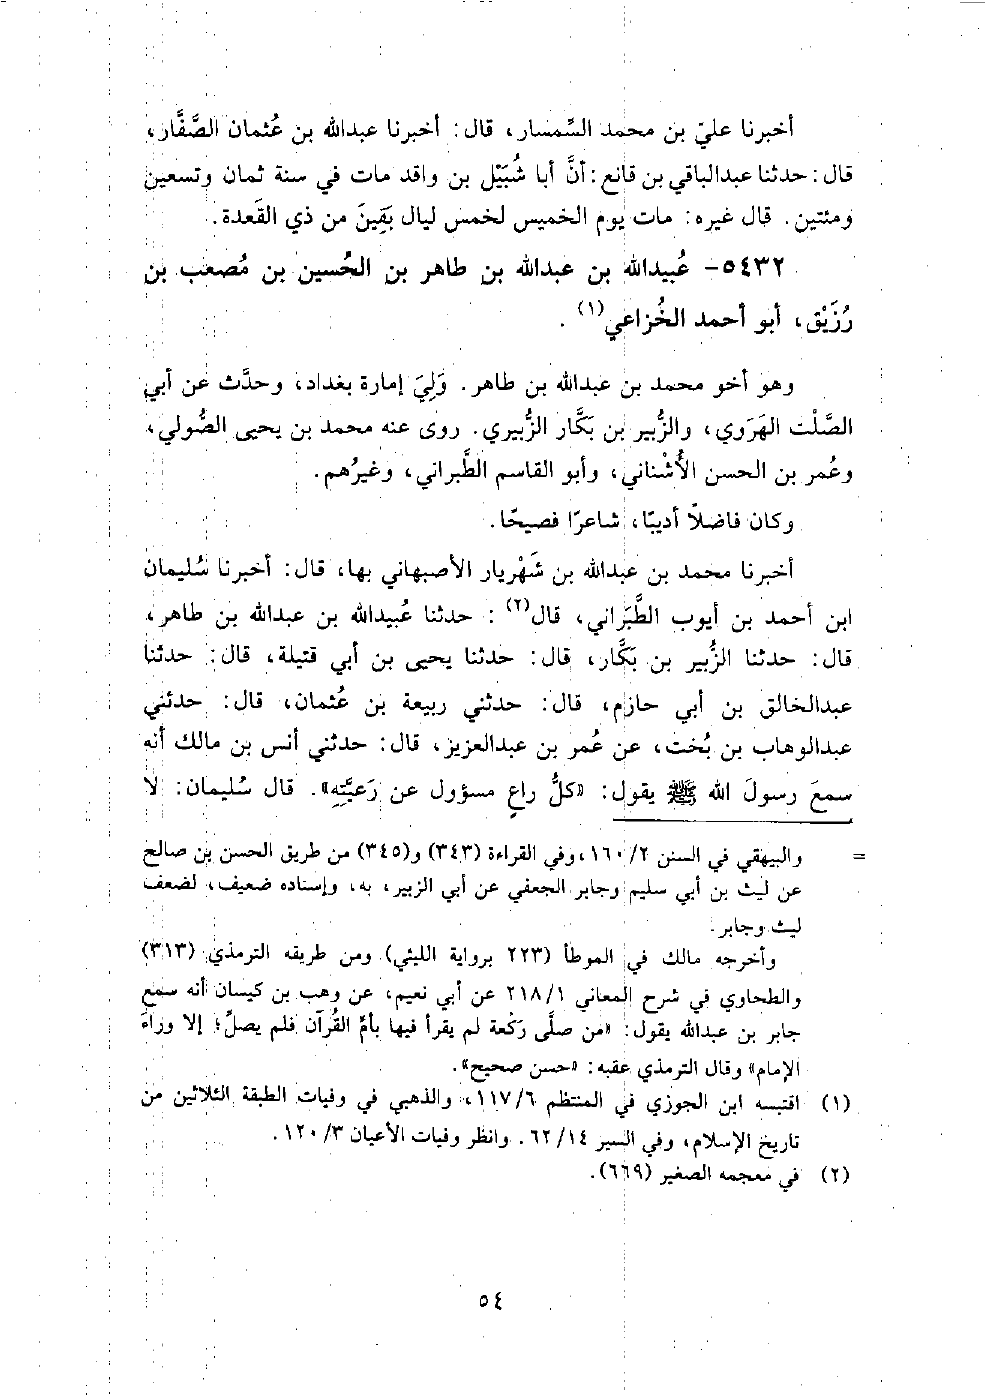 أخبرنا عليّ بن محمد السِّمسار، قال: أخبرنا عبدالله بن عُثمان الصَّفَّار،
قال: حدثنا عبدالباقي بن قانع: أنَّ أبا شُبَيْل بن واقد مات في سنة ثمان وتسعين
ومئتين. قال غيره: مات يوم الخميس لخمس ليال بَقِينَ من ذي القَعدة.
٥٤٣٢- عُبيدالله بن عبدالله بن طاهر بن الحُسين بن مُصعب بن
رُزَيْق، أبو أحمد الخُزاعي(١).
وهو أخو محمد بن عبدالله بن طاهر. وَلِيَ إمارة بغداد، وحدَّث عن أبي
الصَّلْت الهَرَوي، والزُّبير بن بَكَّار الزُّبيري. روى عنه محمد بن يحيى الصُّولي،
وعُمر بن الحسن الأُشْناني، وأبو القاسم الطَّبراني، وغيرُهم.
وكان فاضلاً أديبًا، شاعرًا فصيحًا.
أخبرنا محمد بن عبدالله بن شَهْريار الأصبهاني بها، قال: أخبرنا سُليمان
ابن أحمد بن أيوب الطَّبَراني، قال(٢): حدثنا عُبيدالله بن عبدالله بن طاهر،
قال: حدثنا الزُّبير بن بَكَّار، قال: حدثنا يحيى بن أبي قتيلة، قال: حدثنا
عبدالخالق بن أبي حازم، قال: حدثني ربيعة بن عُثمان، قال: حدثني
عبدالوهاب بن بُخت، عن عُمر بن عبدالعزيز، قال: حدثني أنس بن مالك أنه
سمعَ رسولَ الله ﷺ يقول: «كلُّ راعٍ مسؤول عن رَعيَّتِهِ». قال سُليمان: لا
= والبيهقي في السنن ٢/ ١٦٠، وفي القراءة (٣٤٣) و(٣٤٥) من طريق الحسن بن صالح
عن ليث بن أبي سليم وجابر الجعفي عن أبي الزبير، به، وإسناده ضعيف، لضعف
ليث وجابر.
وأخرجه مالك في الموطأ (٢٢٣ برواية الليثي) ومن طريقه الترمذي (٣١٣)
والطحاوي في شرح المعاني ١/ ٢١٨ عن أبي نعيم، عن وهب بن كيسان أنه سمع
جابر بن عبدالله يقول: «من صلَّى رَكْعة لم يقرأ فيها بأمِّ القُرآن فلم يصلِّ؛ إلا وراءَ
الإمام» وقال الترمذي عقبه: «حسن صحيح».
(١) اقتبسه ابن الجوزي في المنتظم ٦/ ١١٧، والذهبي في وفيات الطبقة الثلاثين من
تاريخ الإسلام، وفي السير ١٤/ ٦٢. وانظر وفيات الأعيان ٣/ ١٢٠.
(٢) في معجمه الصغير (٦٦٩).
٥٤